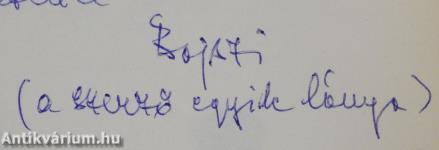 Bojszi
(a szerző egyik lánya)
Antikvárium.hu